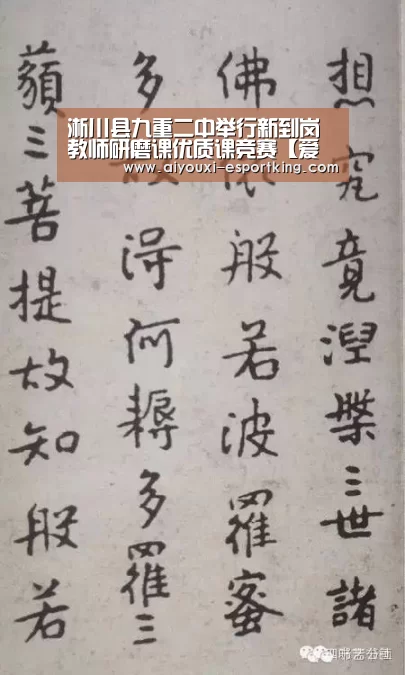 淅川县九重二中举行新到岗
教师研磨课优质课竞赛【爱
www.aiyouxi-esportking.com
想究竟涅槃三世諸
佛般若波羅蜜
多得阿耨多羅三
藐三菩提故知般若